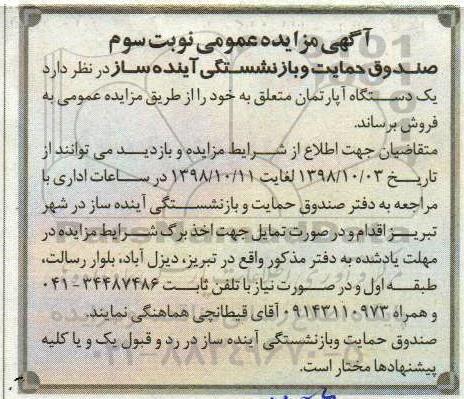 آگهی مزایده عمومی نوبت سوم
صندوق حمایت و بازنشستگی آینده ساز در نظر دارد
یک دستگاه آپارتمان متعلق به خود را از طریق مزایده عمومی به
فروش برساند.
متقاضیان جهت اطلاع از شرایط مزایده و بازدید می توانند از
تاریخ ۱۳۹۸/۱۰/۰۳ لغایت ۱۳۹۸/۱۰/۱۱ در ساعات اداری با
مراجعه به دفتر صندوق حمایت و بازنشستگی آینده ساز در شهر
تبریز اقدام و در صورت تمایل جهت اخذ برگ شرایط مزایده در
مهلت یادشده به دفتر مذکور واقع در تبریز، دیزل آباد، بلوار رسالت،
طبقه اول و در صورت نیاز با تلفن ثابت ۳۴۴۸۷۴۸۶-۰۴۱
و همراه ۰۹۱۴۳۱۱۰۹۷۳ آقای قیطانچی هماهنگی نمایند.
صندوق حمایت وبازنشستگی آینده ساز در رد و قبول یک و یا کلیه
پیشنهادها مختار است.